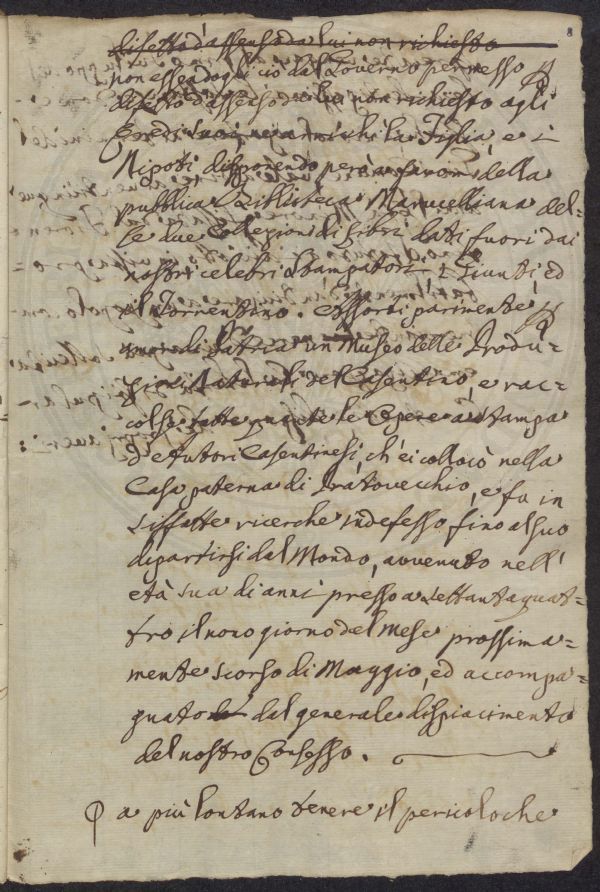 8
difetto d'assenso da lui non richiesto
non essendogli ciò dal Governo permesso
difetto d'assenso da lui non richiesto agli
Eredi suoi la Figlia, e i
Nipoti, disponendo però a favor della
pubblica Biblioteca Marucelliana del=
le due Collezioni di Libri dati fuori dai
nostri celebri Stampatori i Giunti, ed
il Torrentino. parimente
Patria un Museo delle Produ=
zioni Naturali del Casentino, e rac=
colse tutte quante le Opere a stampa
d'Autori Casentinesi, ch'ei collocò nella
Casa paterna di Pratovecchio, e fu in
siffatte ricerche indefesso fino al suo
dipartirsi dal Mondo, avvenuto nell'
età sua di anni presso a settantaquat=
tro il nono giorno del Mese prossima=
mente scorso di Maggio, ed accompa=
gnato dal generale dispiacimento
del nostro Consesso.
a più lontano tenere il pericolo che